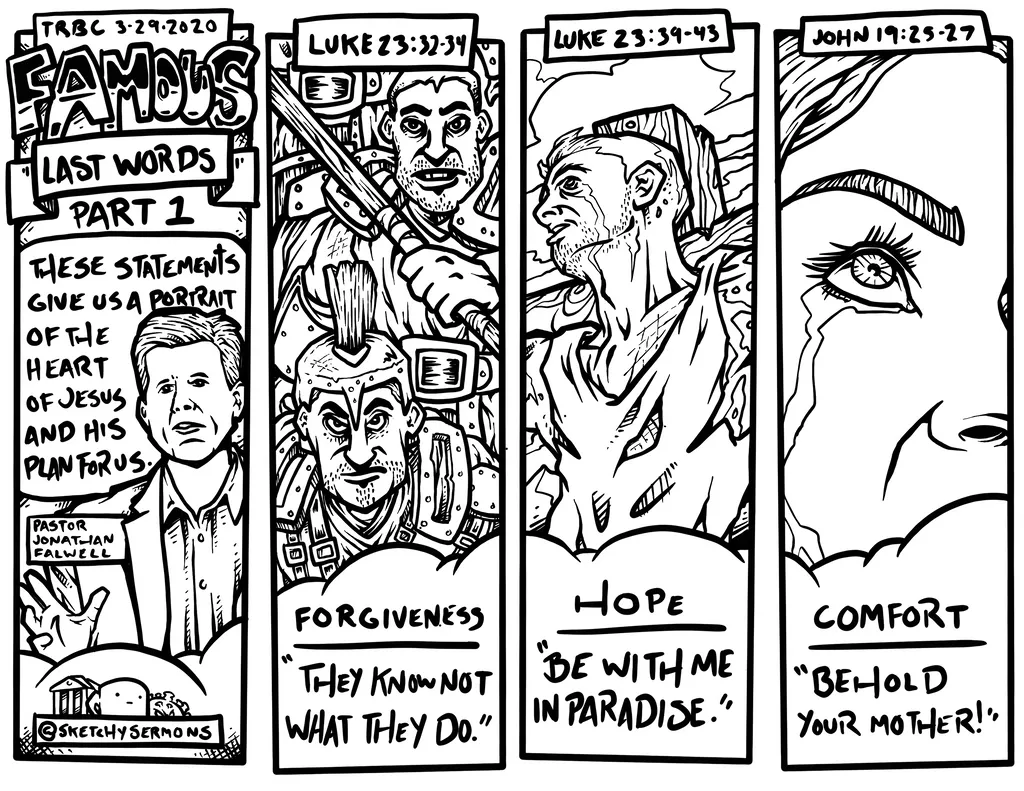 TRBC 3-29-2020
FAMOUS
"LAST WORDS"
PART 1
THESE STATEMENTS
GIVE US A PORTRAIT
OF THE
HEART
OF JESUS
AND HIS
PLAN FOR US.
PASTOR
JONATHAN
FALWELL
©SKETCHYSERMONS
LUKE 23:32-34
FORGIVENESS
"THEY KNOW NOT
WHAT THEY DO."
LUKE 23:39-43
HOPE
"BE WITH ME
IN PARADISE."
JOHN 19:25-27
COMFORT
"BEHOLD
YOUR MOTHER!"